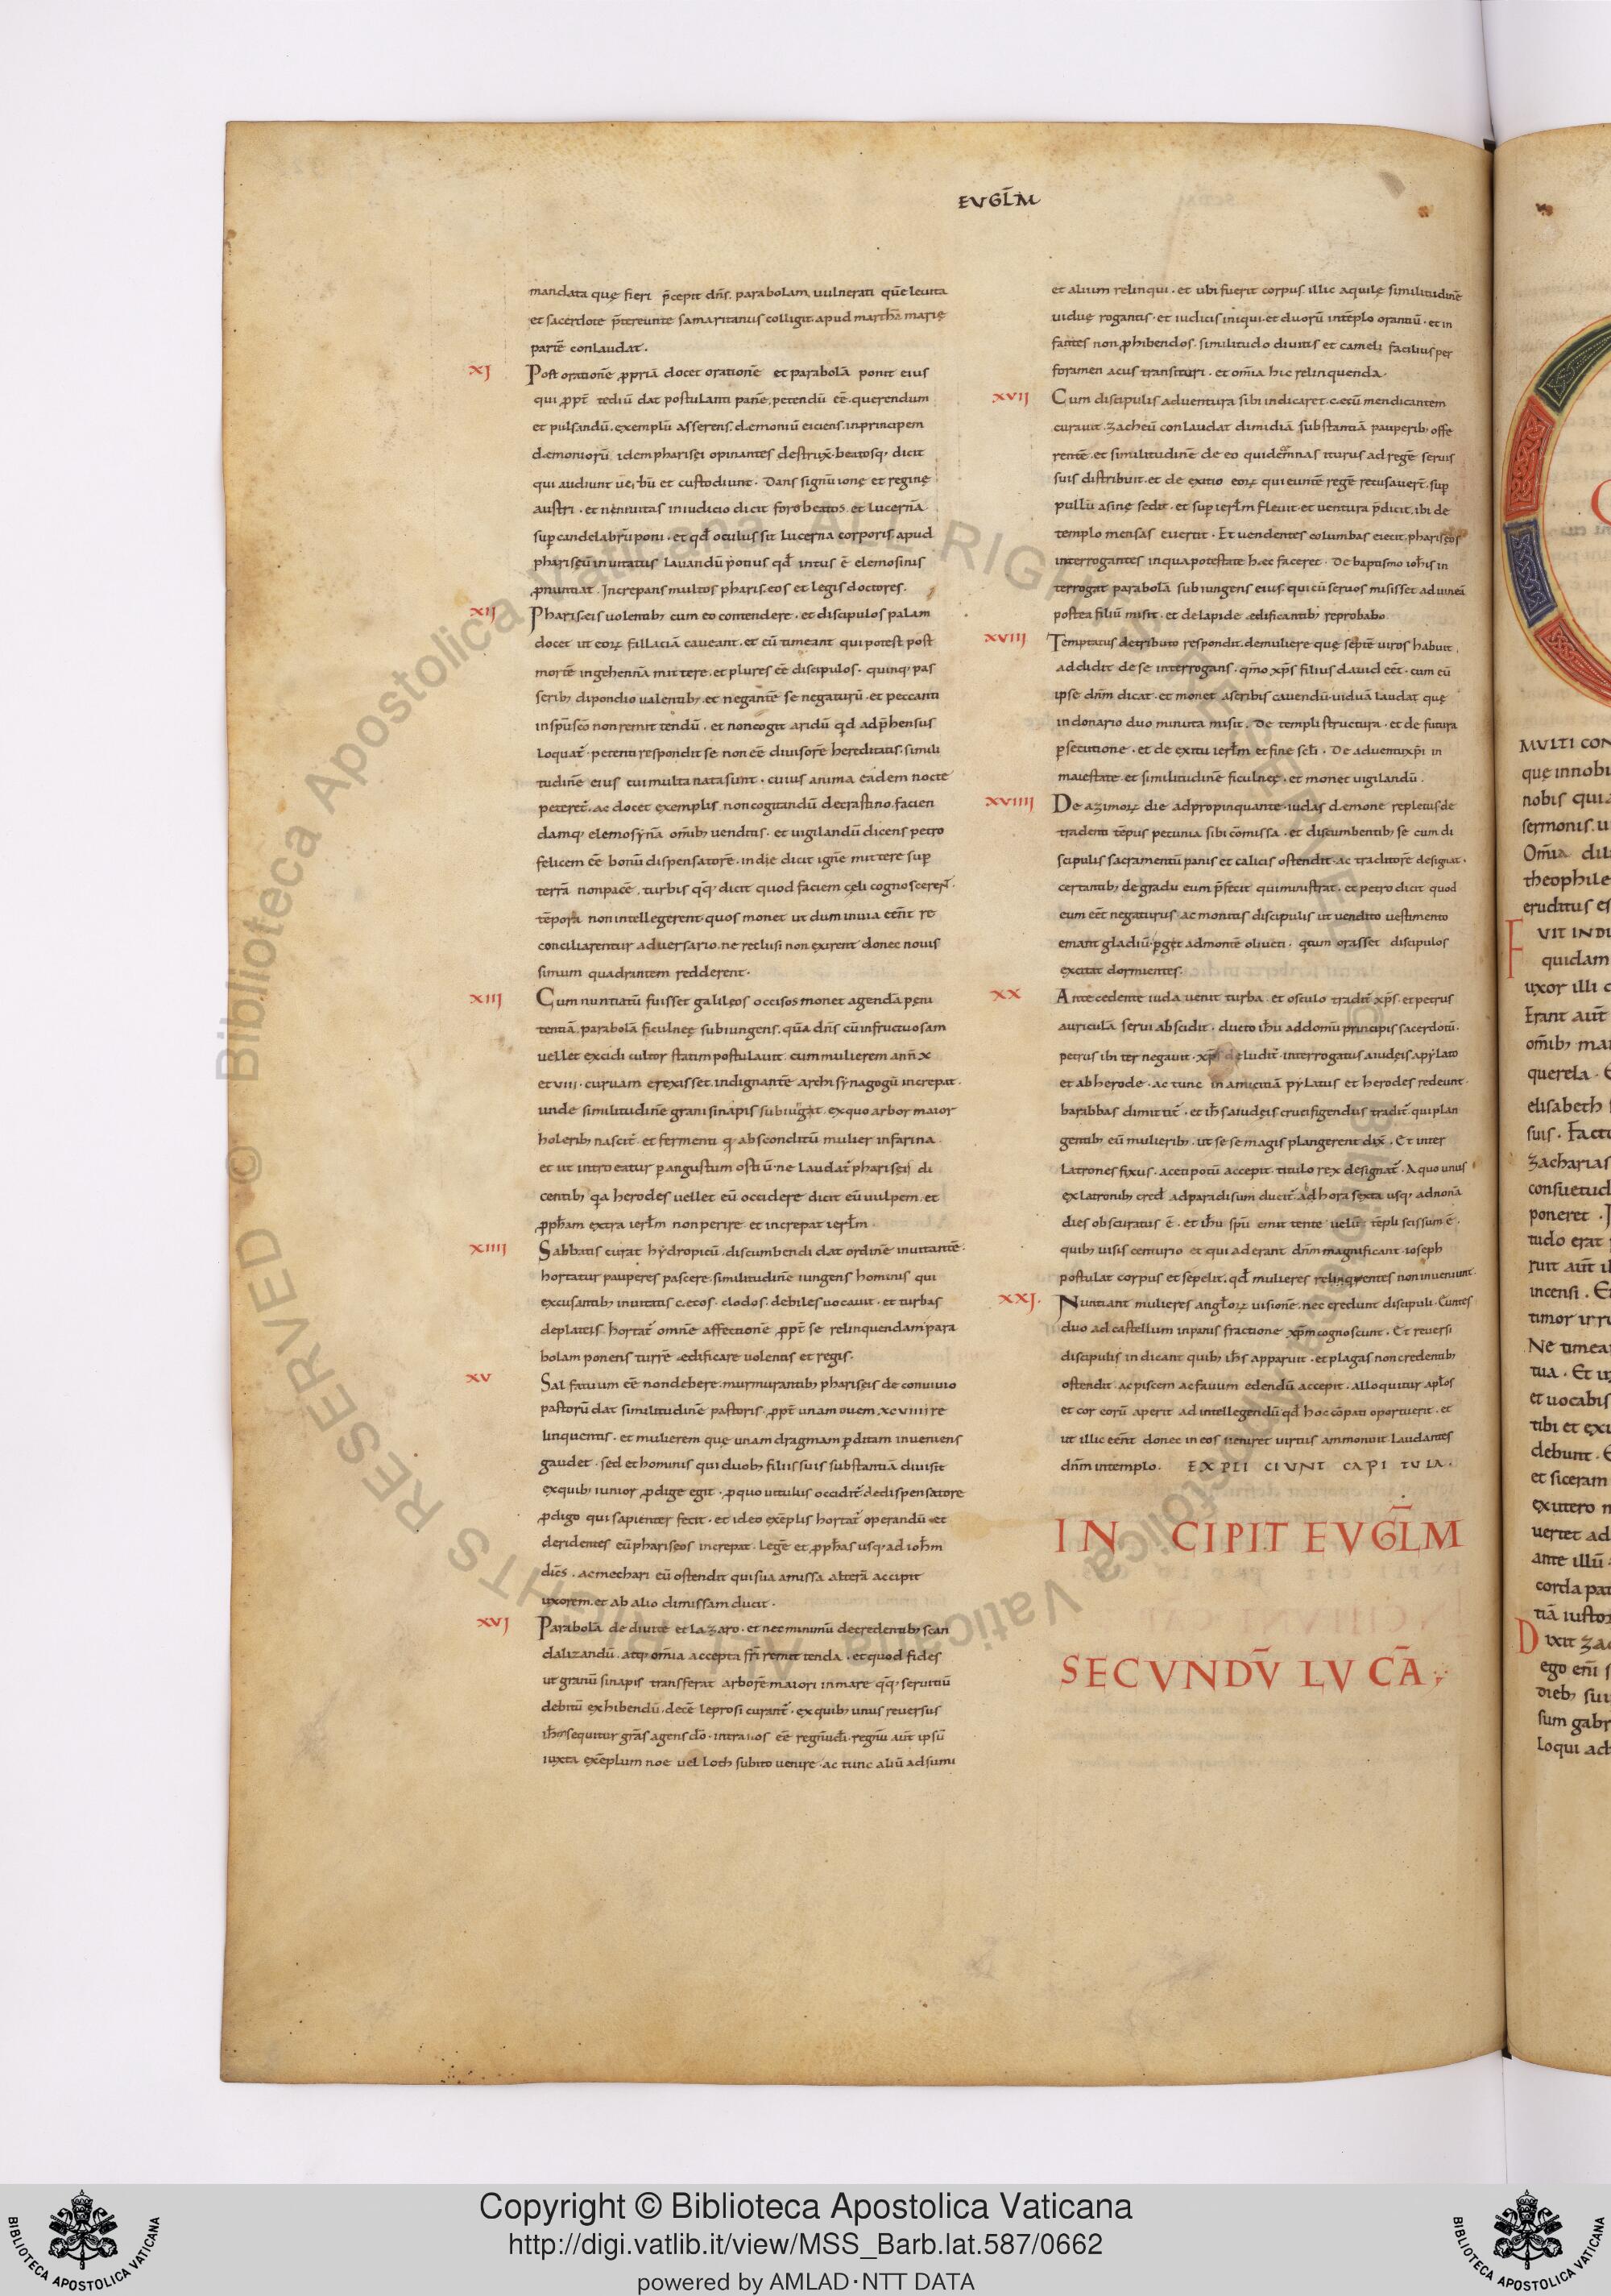 EVGL̅M
mandata quę fieri p̄cepit dn̄s. parabolam uulnerati que̅ leuita
et sacerdote p̄tereunte samaritanus colligit. apud martha̅ marię
parte̅ conlaudat.
XI Post oratione̅ ꝓpria̅ docet oratione̅ et parabola̅ ponit eius
qui ꝓpt̄ tediu̅ dat postulanti pane̅. petendu̅ ee̅. querendum
et pulsandu̅. exemplu̅ asserens. dęmoniu̅ eiciens. inprincipem
dęmonioru̅ idem pharisei opinantes destrux̄. beatosq; dicit
qui audiunt et custodiunt. Dans signu̅ ionę et reginę
austri. et neniuitas iniudicio dicit foro beatos. et lucerna̅
sup̱ candelabru̅ poni. et qd̄ oculus sit lucerna corporis. apud
phariseu̅ inuitatus lauandu̅ potius qd̄ intus e̅ elemosinis
ꝓnuntiat. Increpans multos pharisęos et legis doctores.
XII Pharisęis uolentib; cum eo contendere. et discipulos palam
docet ut eoꝝ fallacia̅ caueant. et cu̅ timeant qui potest post
morte̅ ingehenna̅ mittere. et plures ee̅ discipulos. quinq; pas
serib; dipondio ualentib; et negante̅ se negaturu̅. et peccanti
insp̅u̅ sc̅o̅ non remittendu̅. et non cogitaridu̅ qd̄ adp̄hensus
loquat̄. petenti respondit se non ee̅ diuisore̅ hereditatis. simili
tudine̅ eius cui multa nata sunt. cuius anima eadem nocte
peteret̄. ac docet exemplis non cogitandu̅ decrastino. facien
damq; elemosyna̅ om̅ib; uenditis. et uigilandu̅ dicens petro
felicem ee̅ bonu̅ dispensatore̅. indie dicit igne̅ mittere sup̱
terra̅ non pace̅. turbis qq; dicit quod faciem cęli cognoscerent.
te̅pora non intellegerent. quos monet ut dum inuia eent̄ re
conciliarentur aduersario. ne reclusi non exirent donec nouis
simum quadrantem redderent.
XIII Cum nuntiatu̅ fuisset galileos occisos monet agenda̅ pęni
tentia̅. parabola̅ ficulneę subiungens. qua̅ dn̄s cu̅ infructuosam
uellet excidi cultor statim postulauit. cum mulierem ann̄ x
et uiii. curuam erexisset. indignante̅ archisynagogu̅ increpat.
unde similitudine̅ grani sinapis subiu̅gat. ex quo arbor maior
holerib; nascit̄. et fermenti q̱ absconditu̅ mulier infarina
et ut introeatur p̱ angustum ostiu̅. ne laudat̄ phariseis di
centib; qa herodes uellet eu̅ occidere dicit eu̅ uulpem. et
ꝓpham extra ierl̅m non perire. et increpat ierl̅m.
XIIII Sabbatis curat hydropicu̅. discumbendi dat ordine̅ inuitante̅.
hortatur pauperes pascere. similitudine̅ iungens hominis qui
excusantib; inuitatis cęcos. clodos. debiles uocauit. et turbas
deplateis. hortat̄ omne̅ affectione̅ ꝓpt̄ se relinquendam para
bolam ponens turre̅ ędificare uolentis et regis.
XV Sal fatuum ee̅ non debere. murmurantib; phariseis de conuiuio
pastoru̅ dat similitudine̅ pastoris. ꝓpt̄ unam ouem. xcuiiii re
linquentis. et mulierem quę unam dragmam p̱ditam inueniens
gaudet. sed et hominis qui duob; filiis suis substantia̅ diuisit
exquib; iunior ꝓdige egit. ꝓ quo uitulus occidit̄. dedispensatore
ꝓdigo qui sapienter fecit. et ideo exe̅plis hortat̄ operandu̅. et
deridentes eu̅ phariseos increpat. lege̅ et ꝓphas usq; ad ioh̅m
dic̅s. ac męchari eu̅ ostendit qui sua amissa altera̅ accipit
uxorem. et ab alio dimissam ducit.
XVI Parabola̅ de diuite et lazaro. et nec minimu̅ decredentib; scan
dalizandu̅. atq; om̅ia accepta fr̅i remittenda. et quod fides
ut granu̅ sinapis transferat arbore̅ maiori inmare qq; seruitiu̅
debitu̅ exhibendu̅. dece̅ leprosi curant̄. exquib; unus reuersus
ih̅m sequitur gra̅s agens do̅. intra nos ee̅ regnu̅ di̅. regnu̅ aut̄ ipsu̅
iuxta exe̅plum noe uel loth subito uenire. ac tunc aliu̅ adsumi
et alium relinqui. et ubi fuerit corpus. illic aquilę similitudine̅
uiduę rogantis. et iudicis iniqui. et duoru̅ inte̅plo orantiu̅. et in
fantes non ꝓhibendos. similitudo diuitis et cameli facilius per
foramen acus transituri. et om̅ia hic relinquenda.
XVII Cum discipulis aduentura sibi indicaret. cęcu̅ mendicantem
curauit. zacheu̅ conlaudat dimidia̅ substantia̅ pauperib; offe
rente̅. et similitudine̅ de eo qui de̅ mnas iturus ad rege̅ seruis
suis distribuit. et de exitio eoꝝ qui eunte̅ rege̅ recusauert̄. sup̱
pullu̅ asinę sedit. et sup̱ ierl̅m fleuit. et uentura p̄dicit. ibi de
templo mensas euertit. Et uendentes columbas eiecit. phariseos
interrogantes inqua potestate hęc faceret. De baptismo ioh̅is in
terrogat parabola̅ subiungens eius. qui cu̅ seruos misisset aduinea̅
postea filiu̅ misit. et de lapide ędificantib; reprobabo.
XVIII Temptatus detributo respondit. demuliere quę septe̅ uiros habuit.
addidit de se interrogans. qm̅o xp̅s filius dauid eet̄. cum eu̅
ipse dn̅m dicat. et monet ascribis cauendu̅. uidua̅ laudat quę
indonario duo minuta misit. De templi structura. et de futura
p̱secutione. et de exitu ierl̅m et fine scl̅i. De aduentu xp̅i in
maiestate. et similitudine̅ ficulneę. et monet uigilandu̅.
XVIIII De azimoꝝ die adpropinquante. iudas dęmone repletus de
tradenti te̅pus pecunia sibi co̅missa. et discumbentib; se cum di
scipulis sacramentu̅ panis et calicis ostendit. ac traditore̅ designat.
certantib; de gradu eum p̄fecit qui ministrat. et petro dicit quod
eum eet̄ negaturus ac monitis discipulis ut uendito uestimento
emant gladiu̅. p̱get admonte̅ oliueti. orasset discipulos
excitat dormientes.
XX Antecedente iuda uenit turba. et osculo tradit̄ xp̅s. et petrus
auricula̅ serui abscidit. ducto ih̅u addomu̅ principis sacerdotu̅.
petrus ibi ter negauit. xp̅s deludit̄. interrogatus aiudęis apylato
et ab herode. ac tunc in amicitia̅ pylatus et herodes redeunt.
barabbas dimittit̄. et ih̅s aiudęis crucifigendus tradit̄. qui plan
gentib; eu̅ mulierib; ut se se magis plangerent dix̄. Et inter
latrones fixus. aceti potu̅ accepit. titulo rex designat̄. A quo unus
ex latronib; cred̄ adparadisum ducit̄. ad hora sexta usq; adnona̅
dies obscuratus e̅. et ih̅u sp̅u̅ emittente uelu̅ te̅pli scissum e̅.
quib; uisis centurio et qui aderant dn̅m magnificant. ioseph
postulat corpus et sepelit. qd̄ mulieres relinquentes non inueniunt.
XXI. Nuntiant mulieres angl̅oꝝ uisione̅. nec credunt discipuli. Euntes
duo ad castellum inpanis fractione xp̅m cognoscunt. Et reuersi
discipulis indicant quib; ih̅s apparuit. et plagas non credentib;
ostendit. ac piscem ac fauum edendu̅ accepit. alloquitur apl̅os
et cor eoru̅ aperit ad intellegendu̅ qd̄ hoc co̅pati oportuerit. et
ut illic eent̄ donec in eos ueniret uirtus ammonuit. laudantes
dn̅m intemplo. EXPLICIUNT CAPITULA.
INCIPIT EVGL̅M
SECVNDV̅ LVCA̅;
MVLTI CON
quę innobi
nobis quia
sermonis. u
Om̅ia dili
theophile
eruditus es
FVIT INDI
quidam
uxor illi d
Erant aut̄
om̅ib; ma
querela. E
elisabeth
suis. Factu
zacharias
consuetud
poneret. I
tudo erat
ruit aut̄ il
incensi. E
timor irru
Ne timea
tua. Et u
et uocabis
tibi et exu
debunt. E
et siceram
exutero m
uertet ad
ante illu̅
corda pat
tia̅ iustor
Dixit zac
ego eni̅ s
dieb; sui
sum gabr
loqui ad
© Biblioteca Apostolica Vaticana ALL RIGHTS RESERVED
Copyright © Biblioteca Apostolica Vaticana
http://digi.vatlib.it/view/MSS_Barb.lat.587/0662
powered by AMLAD·NTT DATA
BIBLIOTECA APOSTOLICA VATICANA
BIBLIOTECA APOSTOLICA VATICANA